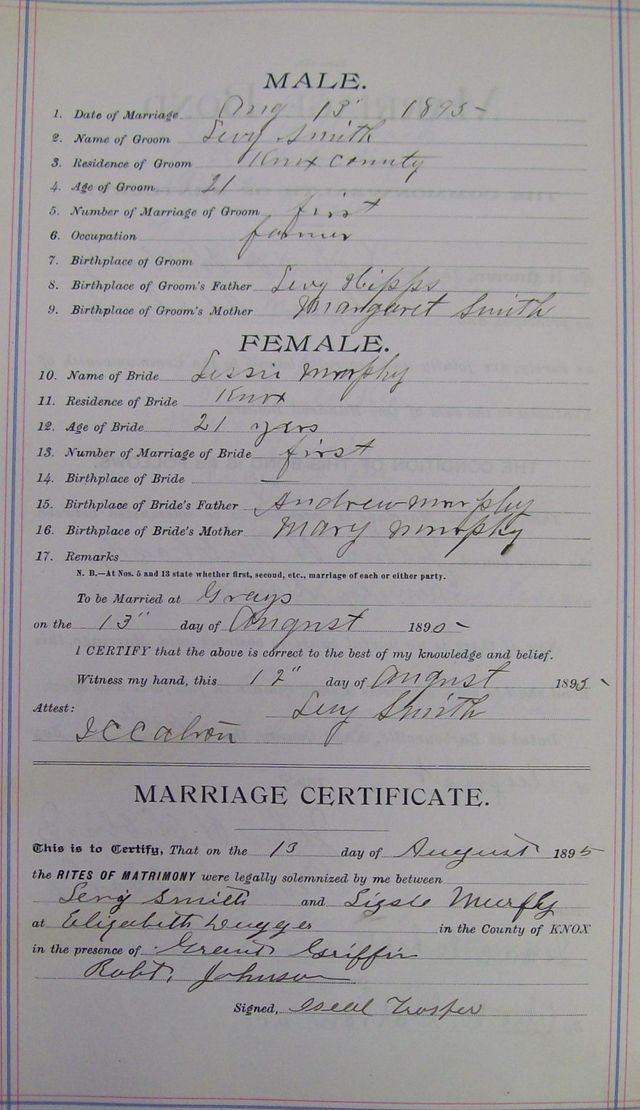 MALE.
1. Date of Marriage Aug 13" 1895
2. Name of Groom Levy Smith
3. Residence of Groom Knox County
4. Age of Groom 21
5. Number of Marriage of Groom first
6. Occupation farmer
7. Birthplace of Groom
8. Birthplace of Groom's Father Levy Hipps
9. Birthplace of Groom's Mother Margaret Smith
FEMALE.
10. Name of Bride Lissie Murphy
11. Residence of Bride Knox
12. Age of Bride 21 yers
13. Number of Marriage of Bride first
14. Birthplace of Bride —
15. Birthplace of Bride's Father Andrew Murphy
16. Birthplace of Bride's Mother Mary Murphy
17. Remarks
N. B.—At Nos. 5 and 13 state whether first, second, etc., marriage of each or either party.
To be Married at Grays
on the 13" day of August 1895
I CERTIFY that the above is correct to the best of my knowledge and belief.
Witness my hand, this 12" day of August 1895
Levy Smith
Attest:
MARRIAGE CERTIFICATE.
This is to Certify, That on the 13 day of August 1895
the RITES OF MATRIMONY were legally solemnized by me between
Levy Smith and Murfy
at Elizabeth Dugger in the County of KNOX
in the presence of Grant Griffin
Robt. Johnson
Signed, Trosper